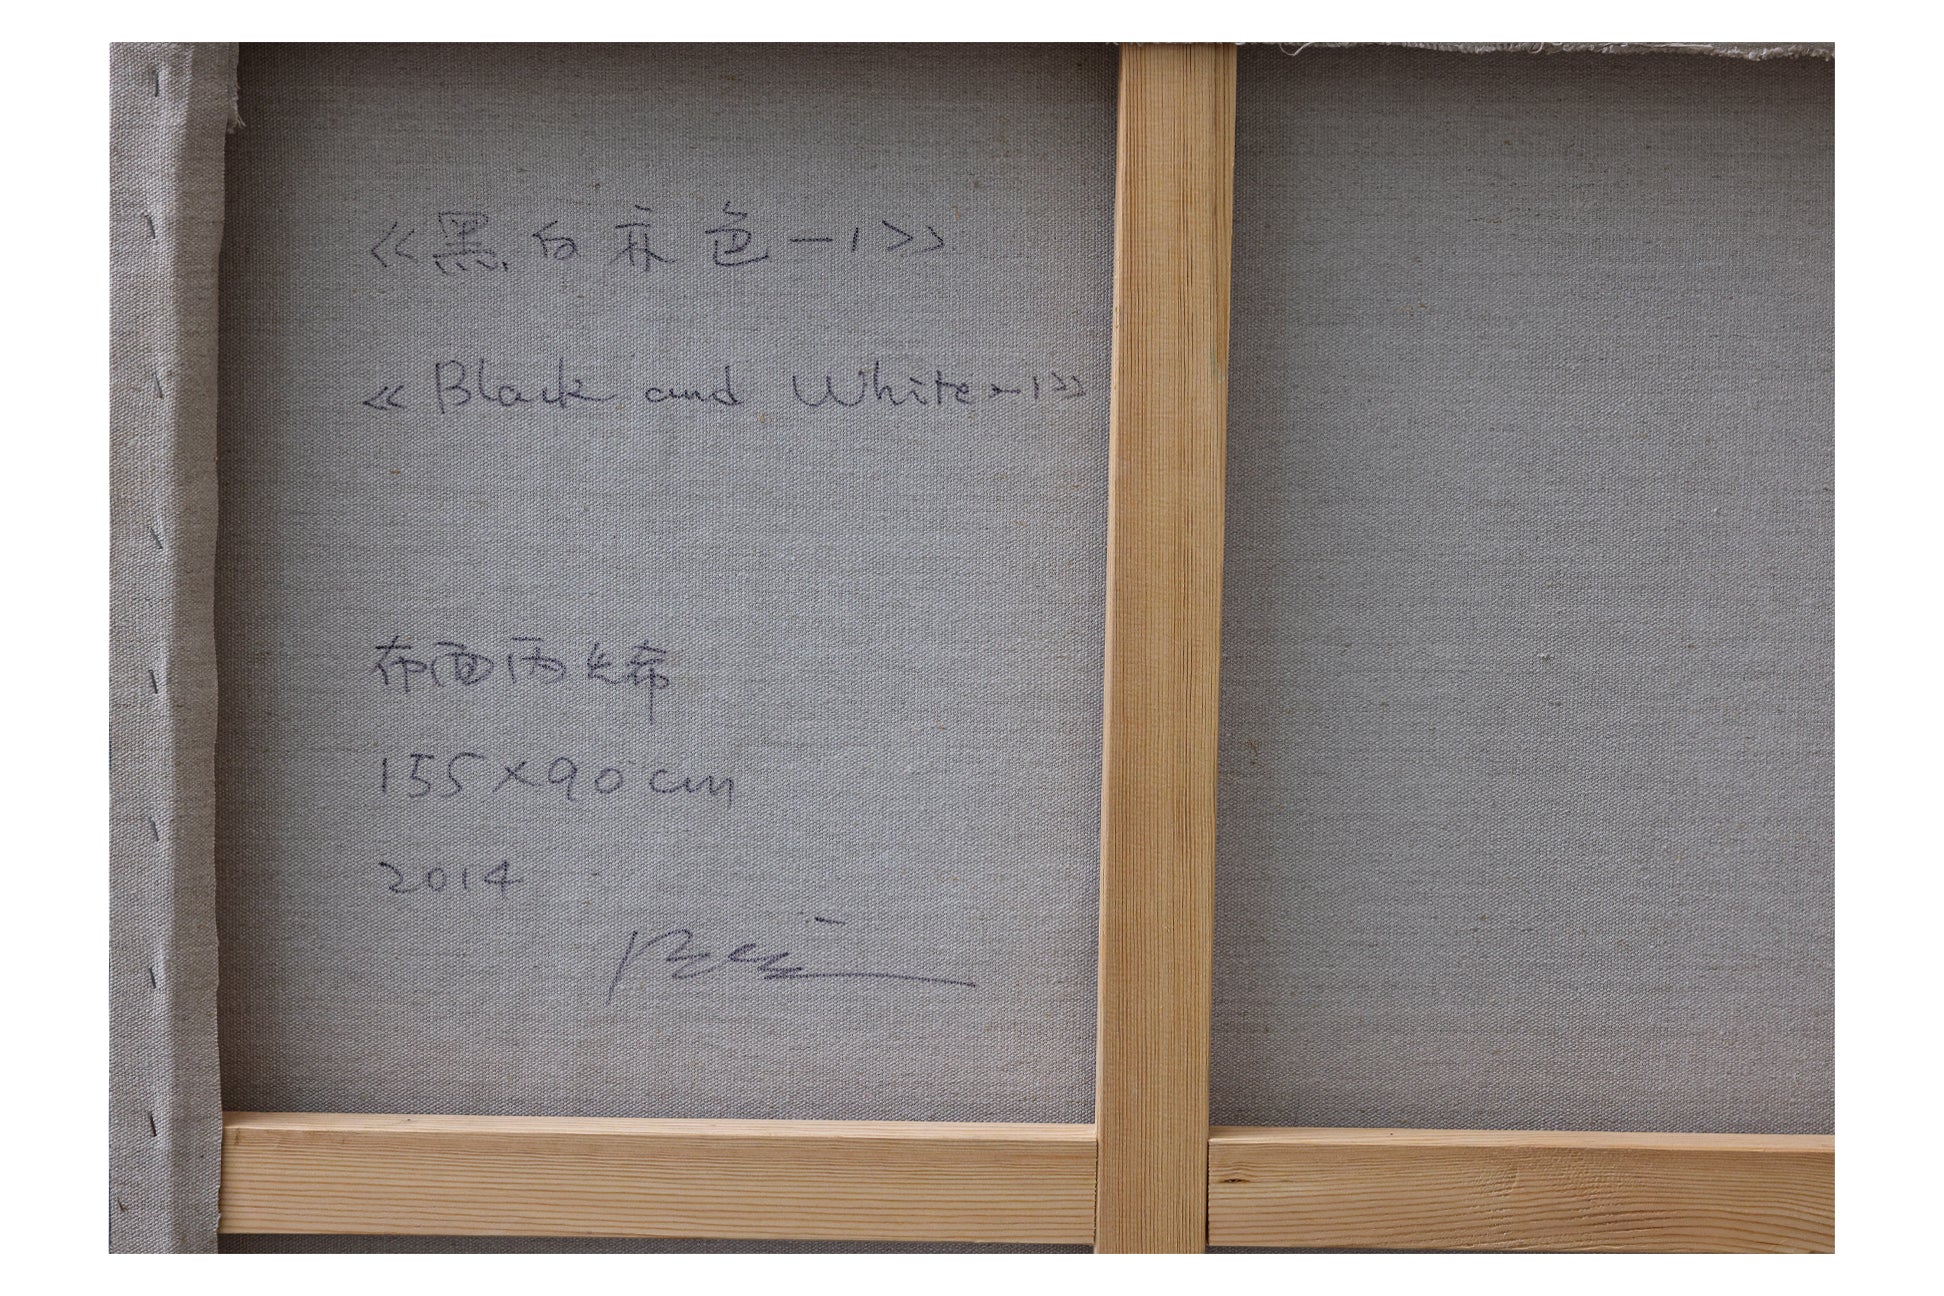 《黑白亦色-1》
《Black and White-1》
布面丙烯
155×90cm
2014